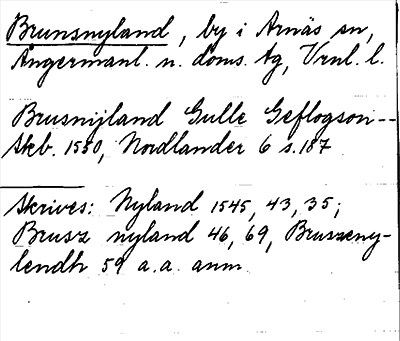 Brunsnyland, by i Arnäs sn,
Ångermanl. n. doms. tg, Vrnl. l.
Brusnijland Gulle Geflogson --
Skb. 1550, Nordlander 6 s. 187
Skrives: Nyland 1545, 43, 35;
Brusz nyland 46, 69, Bruszeny-
lendh 59 a.a. anm